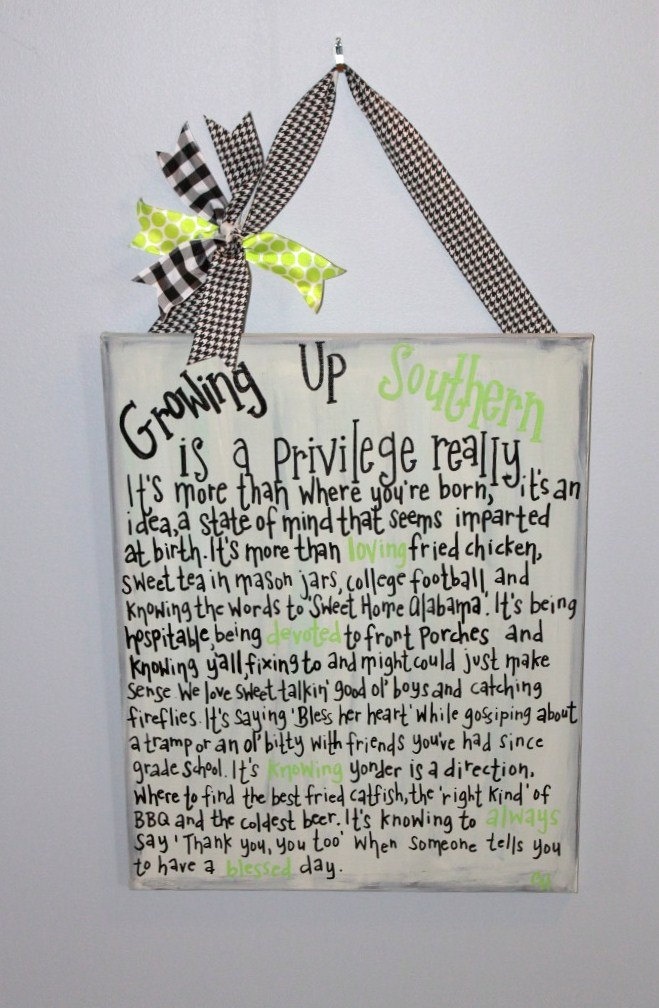 Growing Up Southern
is a privilege really
It's more than where you're born, it's an
idea, a state of mind that seems imparted
at birth. It's more than loving fried chicken,
sweet tea in mason jars, college football, and
knowing the words to 'Sweet Home Alabama'. It's being
hospitable, being devoted to front porches and
knowing y'all, fixing to and might could just make
sense We love sweet talkin' good ol' boys and catching
fireflies. It's saying 'Bless her heart' while gossiping about
a tramp or an ol' bitty with friends you've had since
grade school. It's knowing yonder is a direction,
where to find the best fried catfish, the 'right kind' of
BBQ and the coldest beer. It's knowing to always
say 'Thank you, you too' when someone tells you
to have a blessed day.